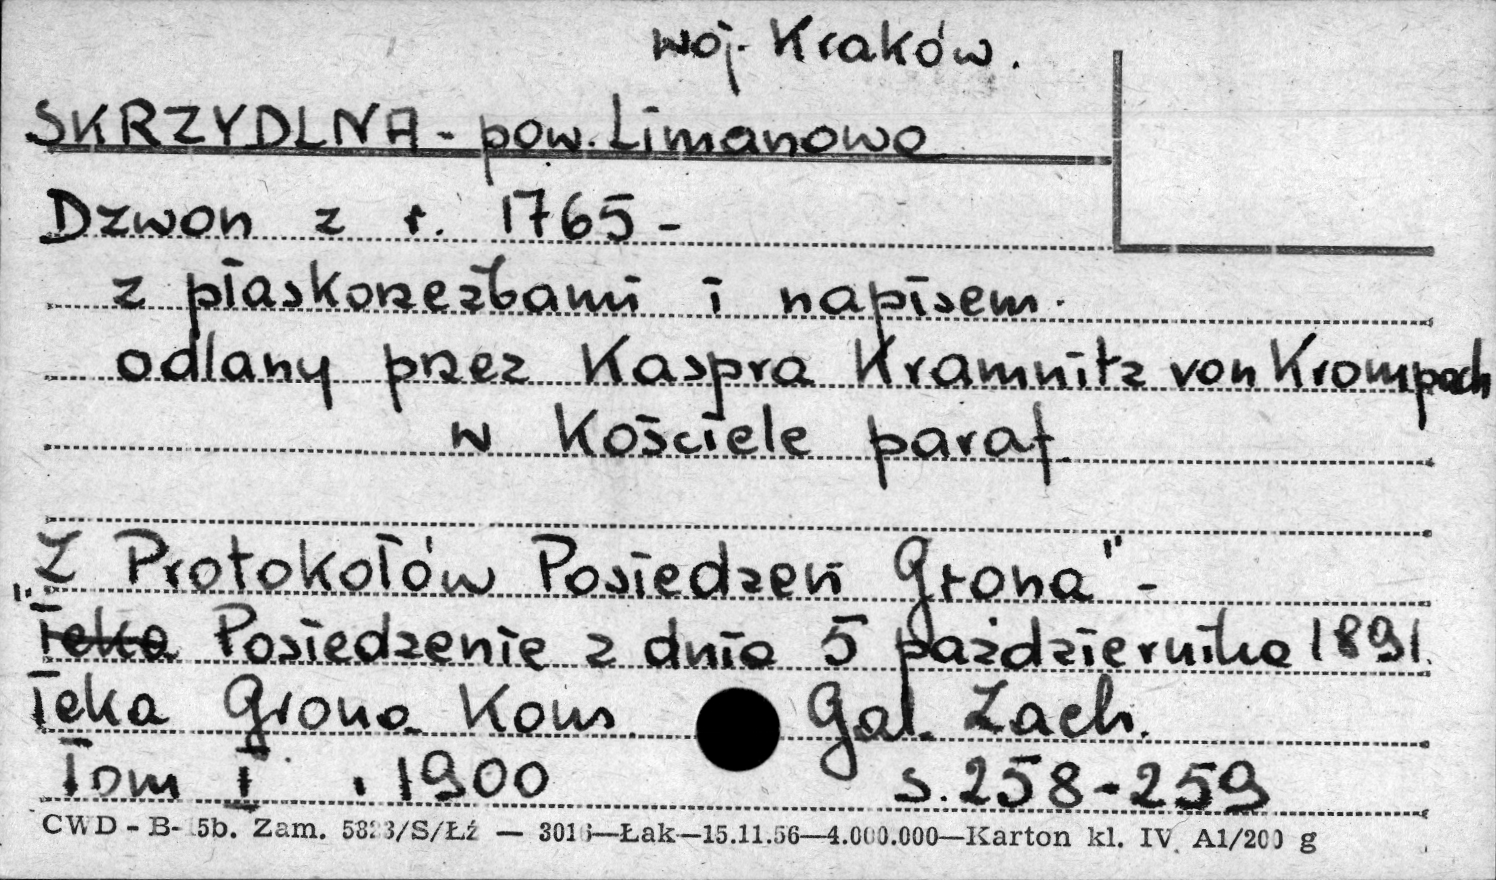 woj. Kraków.
SKRZYDLNA - pow. Limanowa
Dzwon z r. 1765 -
z płaskorzeźbami i napisem.
odlany przez Kaspra Kramnitz von Krompach
w Kościele paraf.
"Z Protokołów Posiedzeń Grona" -
Teka Posiedzenie z dnia 5 października 1891.
Teka Grona Kons. Gal. Zach.
Tom I. 1900 s. 258-259
CWD - B- 5b. Zam. /S/Łź — —Łak—15.11.56—4.000.000—Karton kl. IV A1/200 g